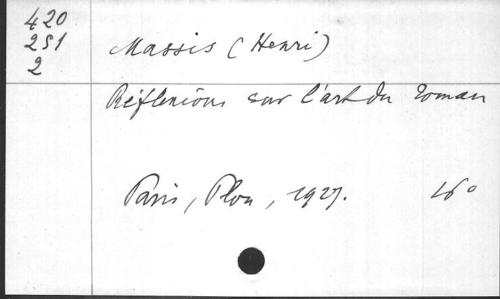 420
251
2
Massis (Henri)
Réflexions sur l'art du roman
Paris, Plon, 1927. 16°